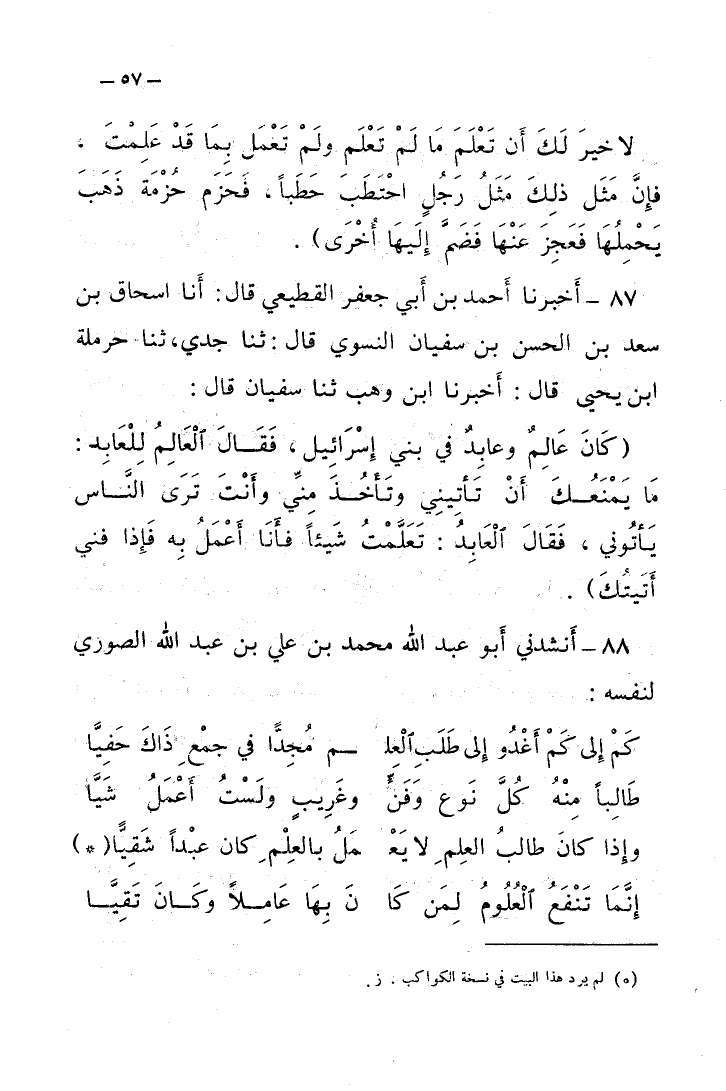 – ٥٧ –
لا خيرَ لَكَ أَن تَعْلَمَ مَا لَمْ تَعْلَم ولَمْ تَعْمَل بِمَا قَدْ عَلِمْتَ ،
فإِنَّ مَثَل ذلِكَ مَثَلُ رَجُلٍ احْتَطَبَ حَطَباً ، فَحَزَم حُزْمَة ذَهَبَ
يَحْمِلُهَا فَعَجِزَ عَنْهَا فَضَمَّ إِلَيهَا أُخْرَى) .
٨٧ – أخبرنا أحمد بن أبي جعفر القطيعي قال : أنا اسحاق بن
سعد بن الحسن بن سفيان النسوي قال : ثنا جدي ، ثنا حرملة
ابن يحيى قال : أخبرنا ابن وهب ثنا سفيان قال :
(كَانَ عَالِمٌ وعابِدٌ في بني إِسْرَائيل ، فَقَـالَ ٱلْعَالِمُ لِلْعَابِد :
مَا يَمْنَعُـكَ أَنْ تَـأْتِيَني وتَـأْخُـذَ مِنِّي وأَنْتَ تَرَى النَّـاس
يَـأْتُوني ، فَقَالَ ٱلْعَابِدُ : تَعَلَّمْتُ شَيئاً فـأَنَا أَعْمَلُ به فَإِذا فني
أَتَيتُكَ) .
٨٨ – أنشدني أبو عبد الله محمد بن علي بن عبد الله الصوري
لنفسه :
كَمْ إِلى كَمْ أَغْدُو إِلى طَلَبِ ٱلْعِلـ ـم مُجِدًّا في جمْعِ ذَاكَ حَفِيًّا
طَالِباً مِنْهُ كُلَّ نَوعٍ وَفَنٍّ وغَريبٍ ولَسْتُ أَعْمَلُ شَيًّا
وإِذا كانَ طالبُ العلمِ لا يَعْـ ـمَلُ بالعِلْمِ كان عبْداً شَقيًّا(*)
إِنَّمَا تَنْفَعُ ٱلْعُلُومُ لِمَن كَا نَ بِهَا عَامِـلاً وكَـانَ تَقِيًّـا
(٥) لم يرد هذا البيت في نسخة الكواكب . ز.